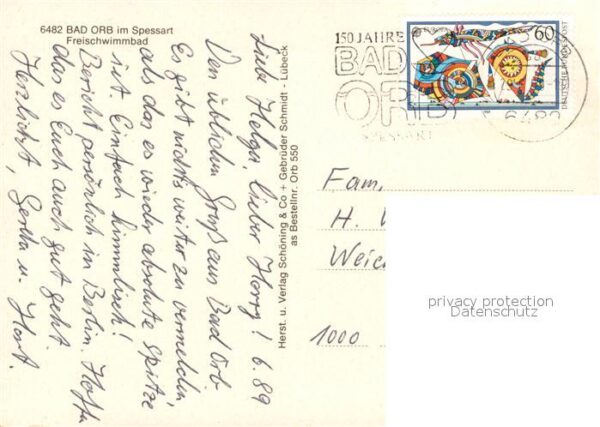 6482 BAD ORB im Spessart
Freischwimmbad
Liebe Helga, lieber Harry! 6.89
Den üblichen Gruß aus Bad Orb.
Es gibt nichts weiter zu vermelden,
als das es wieder absolute Spitze
ist. Einfach himmlisch!
Bericht persönlich in Berlin. Hoffe
das es Euch auch gut geht.
Herzlichst, Gerda u. Horst.
Herst. u. Verlag Schöning & Co + Gebrüder Schmidt - Lübeck
as Bestellnr. Orb 550
150 JAHRE
BAD
ORB
SPESSART
6482
60
DEUTSCHE BUNDESPOST
Fam.
H.
Weic
1000
privacy protection
Datenschutz